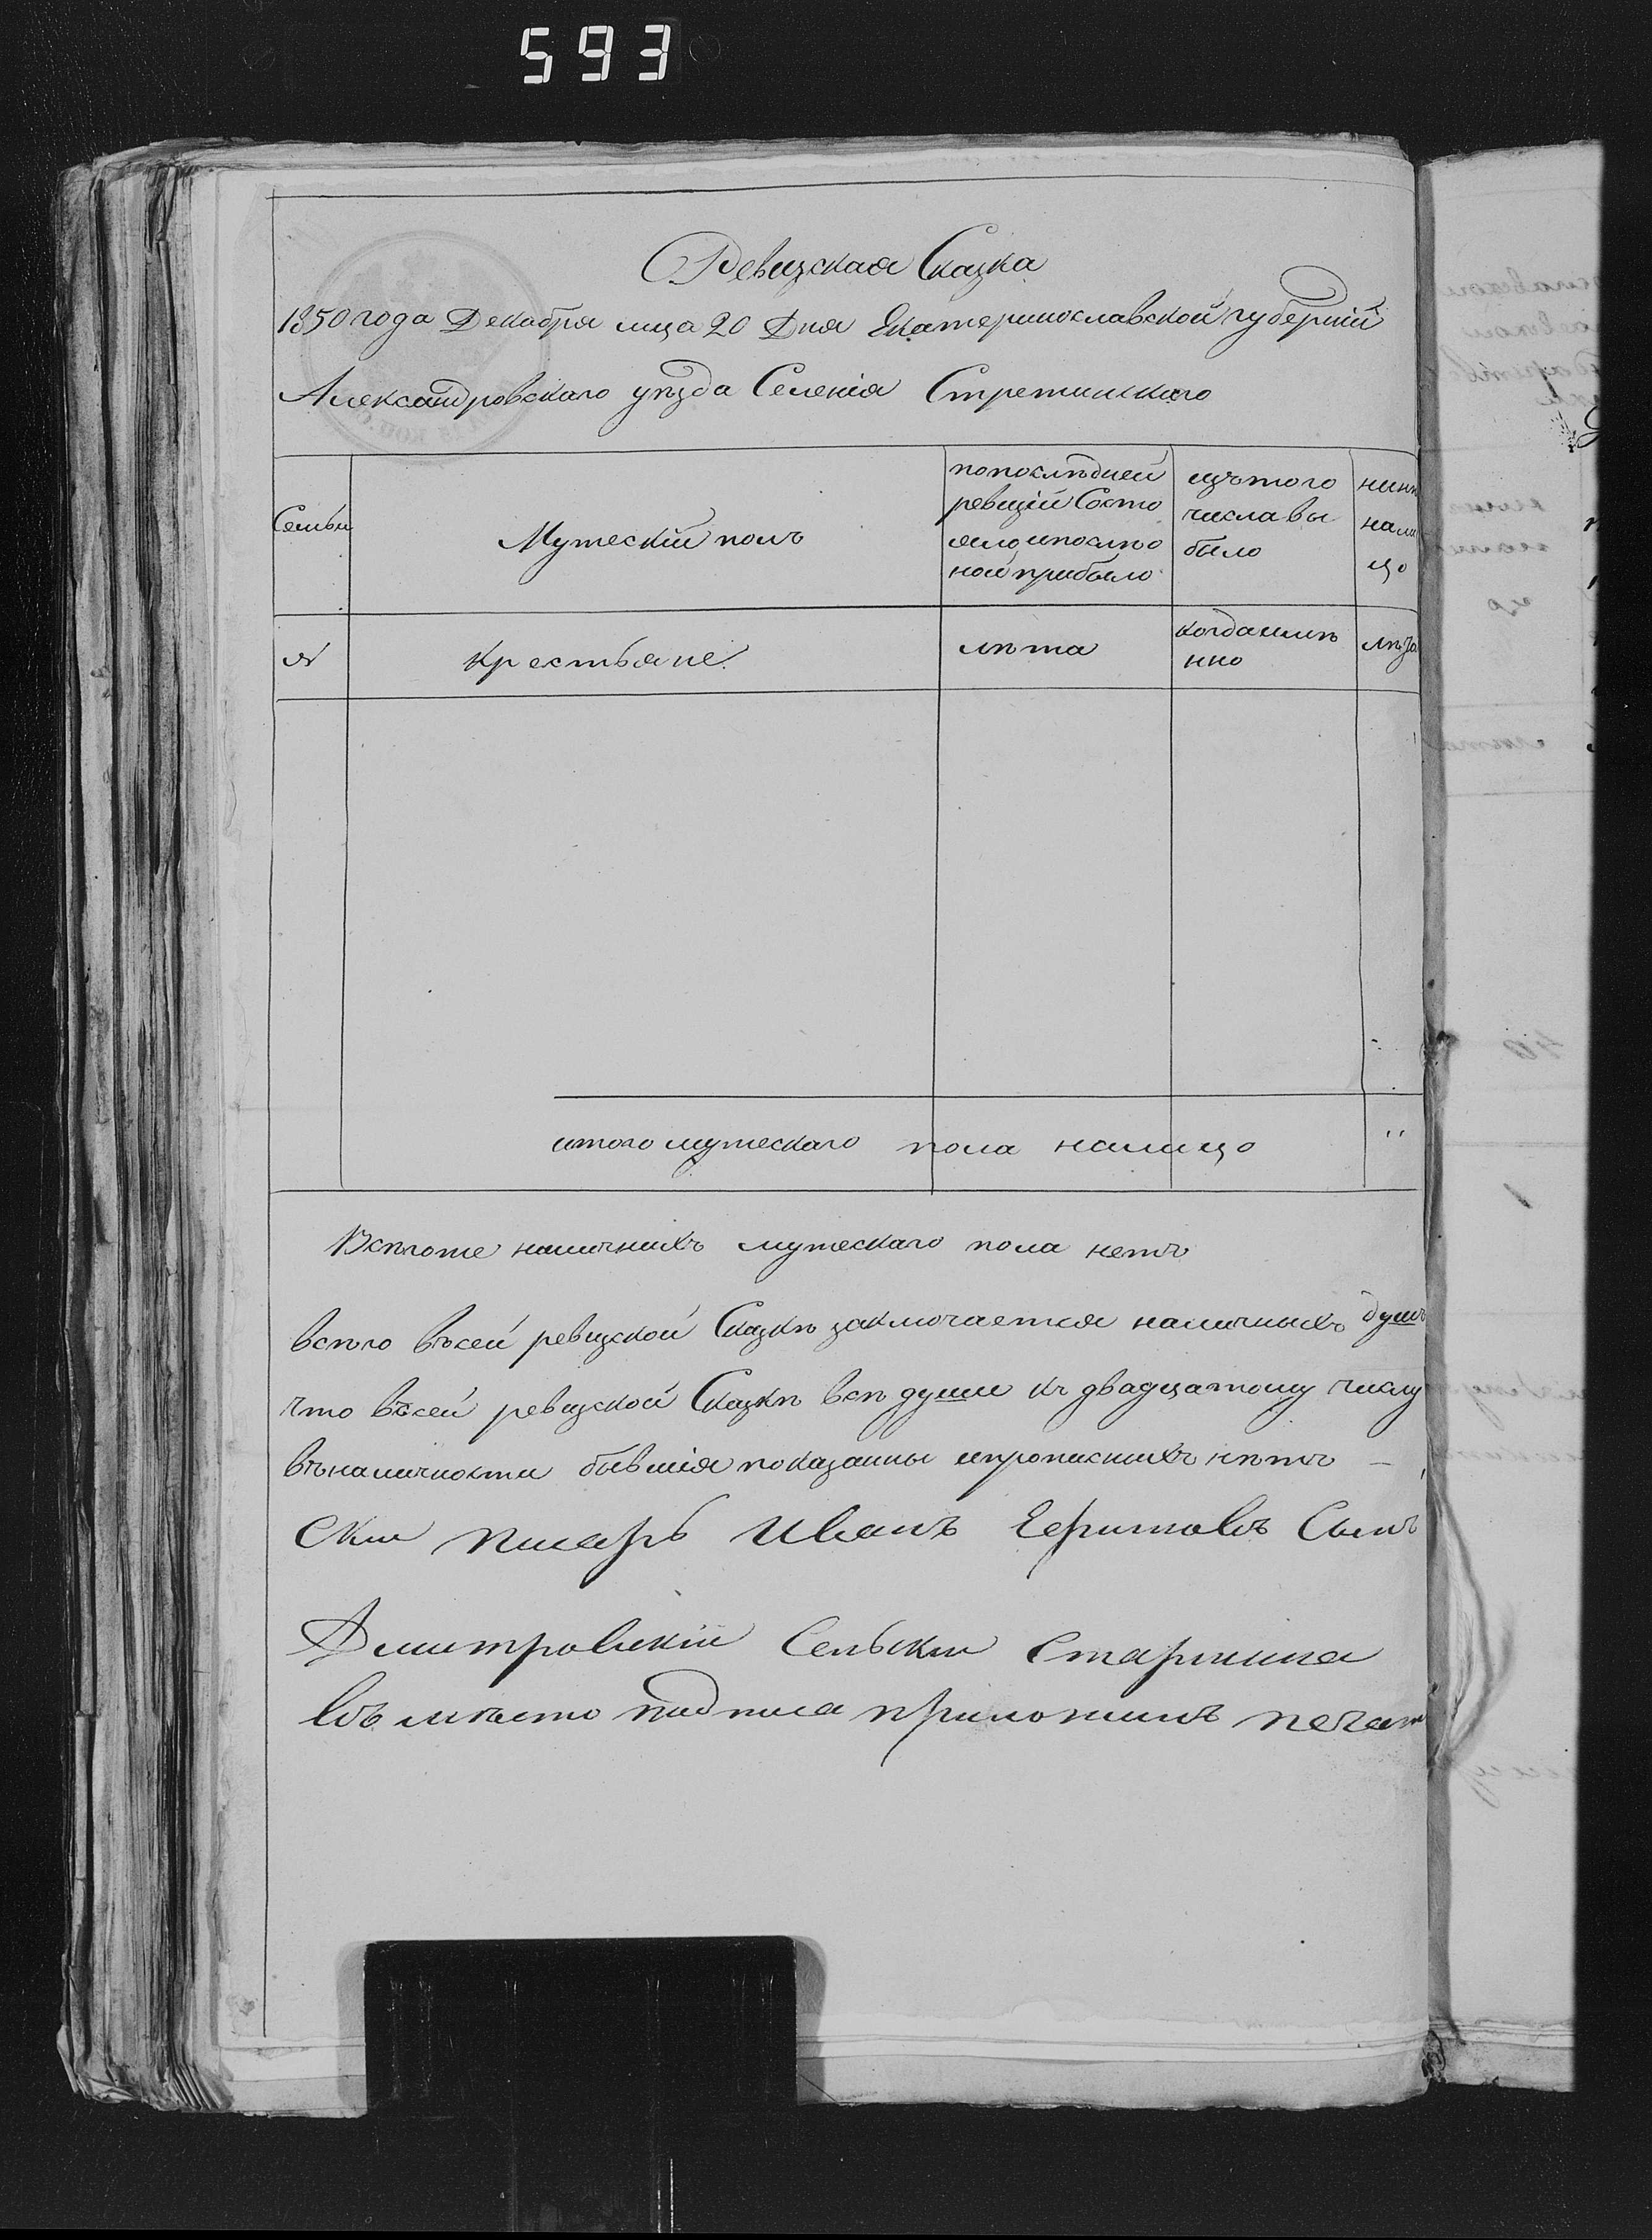 593
Ревизская Сказка
1850 года Декабря мца 20 Дня Екатеринославской губерніи
Александровскаго уѣзда Селенія Стретинскаго
Семьи
Мужескій полъ
попослѣдней
ревизіи Состо
яло ипослѣо
ной прибыло
изътого
числа вы
было
нынѣ
нали
цо
№
Крестьяне
лѣта
когдаимѣ
нно
лѣта
итого мужескаго пола налицо "
наличнихъ мужескаго пола нетъ
всѣго въсей ревизской Сказкѣ заключается наличныхъ душъ
что въсей ревизской Сказкѣ всѣ души къ двадцатому числу
въналичности бывшія показанны ипрописнихъ нѣтъ —
Ски писарь Иванъ Сынъ
Дмитровскій Сельски Старшина
въ мѣсто подписа приложилъ печат